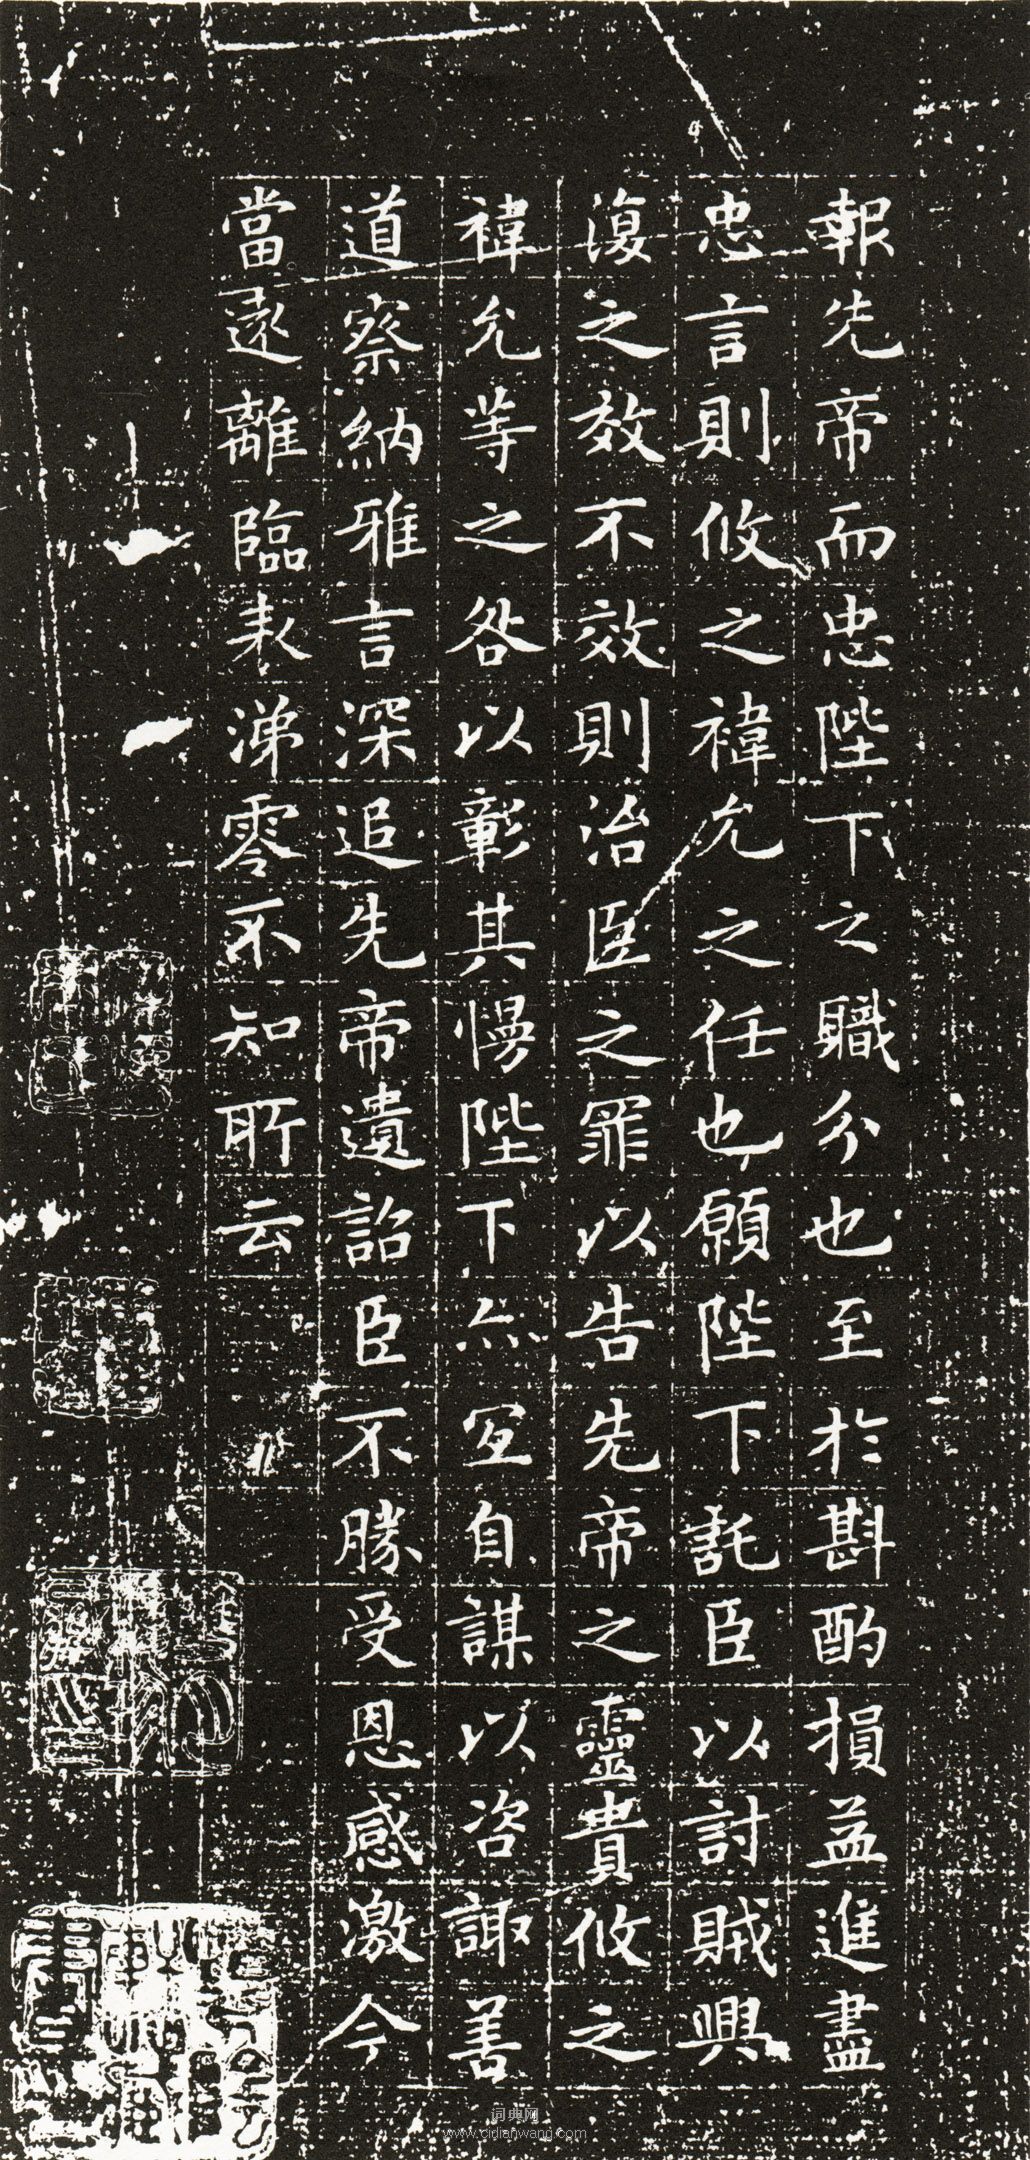 報先帝而忠陛下之職分也至於斟酌損益進盡
忠言則攸之禕允之任也願陛下託臣以討賊興
復之效不效則治臣之罪以告先帝之靈責攸之
禕允等之咎以彰其慢陛下亦宜自謀以咨諏善
道察納雅言深追先帝遺詔臣不勝受恩感激今
當遠離臨表涕零不知所云
词典网
www.cidianwang.com